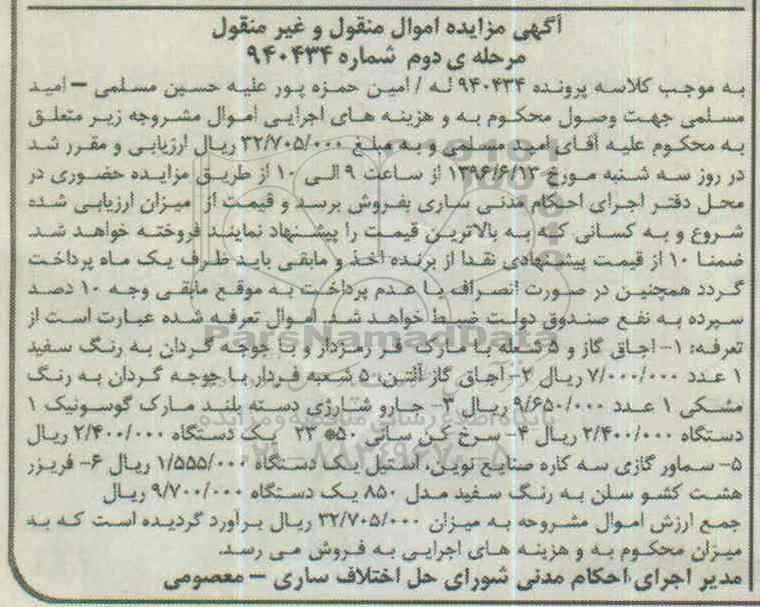 آگهی مزایده اموال منقول و غیر منقول
مرحله ی دوم شماره ۹۴۰۴۳۴
به موجب کلاسه پرونده ۹۴۰۴۳۴ له / امین حمزه پور علیه حسین مسلمی – امید
مسلمی جهت وصول محکوم به و هزینه های اجرایی اموال مشروحه زیر متعلق
به محکوم علیه آقای امید مسلمی و به مبلغ ۳۲/۷۰۵/۰۰۰ ریال ارزیابی و مقرر شد
در روز سه شنبه مورخ ۱۳۹۶/۶/۱۳ از ساعت ۹ الی ۱۰ از طریق مزایده حضوری در
محل دفتر اجرای احکام مدنی ساری بفروش برسد و قیمت از میزان ارزیابی شده
شروع و به کسانی که به بالاترین قیمت را پیشنهاد نمایند فروخته خواهد شد.
ضمنا ۱۰ از قیمت پیشنهادی نقدا از برنده اخذ و مابقی باید ظرف یک ماه پرداخت
گردد همچنین در صورت انصراف یا عدم پرداخت به موقع مابقی وجه ۱۰ دصد
سپرده به نفع صندوق دولت ضبط خواهد شد. اموال تعرفه شده عبارت است از
تعرفه: ۱- اجاق گاز و ۵ شعله با مارک فر رمزدار و با جوجه گردان به رنگ سفید
۱ عدد ۷/۰۰۰/۰۰۰ ریال ۲- اجاق گاز آلتین ۵ شعبه فردار با جوجه گردان به رنگ
مشکی ۱ عدد ۹/۶۵۰/۰۰۰ ریال ۳- جارو شارژی دسته بلند مارک گوسونیک ۱
دستگاه ۲/۴۰۰/۰۰۰ ریال ۴- سرخ کن سانی ۵۰* ۲۳ یک دستگاه ۲/۴۰۰/۰۰۰ ریال
۵- سماور گازی سه کاره صنایع نوین، استیل یک دستگاه ۱/۵۵۵/۰۰۰ ریال ۶- فریزر
هشت کشو سلن به رنگ سفید مدل ۸۵۰ یک دستگاه ۹/۷۰۰/۰۰۰ ریال
جمع ارزش اموال مشروحه به میزان ۳۲/۷۰۵/۰۰۰ ریال برآورد گردیده است که به
میزان محکوم به و هزینه های اجرایی به فروش می رسد.
مدیر اجرای احکام مدنی شورای حل اختلاف ساری – معصومی
ParsNamadData